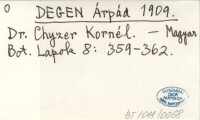 0 DEGEN Árpád 1909.
Dr. Chyzer Kornél. — Magyar
Bot. Lapok 8: 359-362.